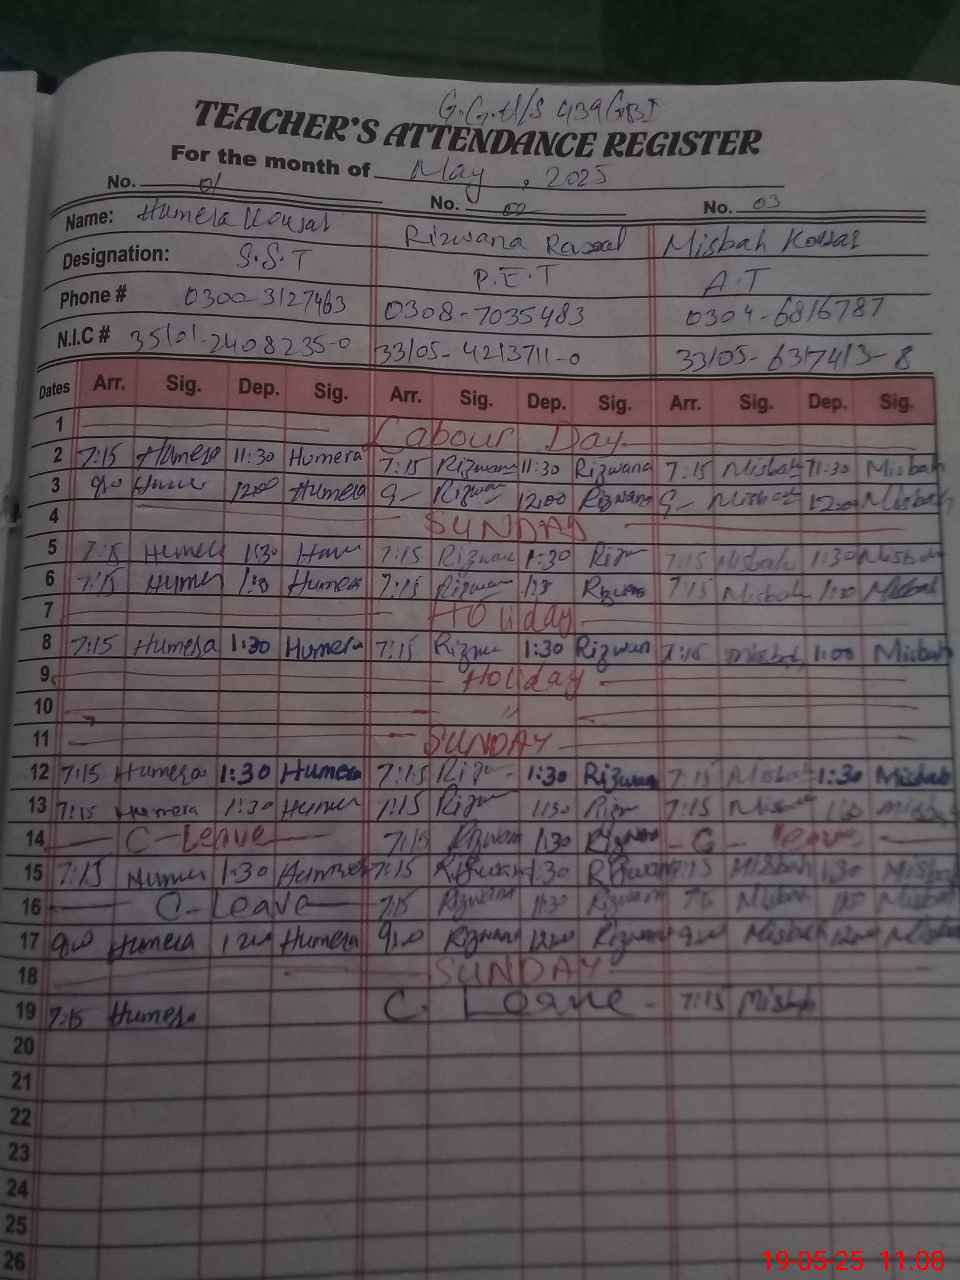 G.G.H/S 439/GBI
TEACHER'S ATTENDANCE REGISTER
For the month of May, 2025
No. 01 No. 02 No. 03
Name: Humera Kousar Rizwana Rasool Misbah Kousar
Designation: S.S.T P.E.T A.T
Phone # 0300-3127463 0308-7035483 0304-6816787
N.I.C # 35101-2408235-0 33105-4213711-0 33105-6317413-8
Dates Arr. Sig. Dep. Sig. Arr. Sig. Dep. Sig. Arr. Sig. Dep. Sig.
1 Labour Day
2 7:15 Humera 11:30 Humera 7:15 Rizwana 11:30 Rizwana 7:15 Misbah 11:30 Misbah
3 12:00 Humera 9- Rizwan 12:00 Rizwana 9- Misbah 12:00 Misbah
4 SUNDAY
5 7:15 Humera 1:30 7:15 Rizwan 1:30 Riz 7:15 Misbah 1:30 Misbah
6 7:15 Humer Humera 7:15 Rizwan Rizwan 7:15 Misbah 1:30 Misbah
7 Holiday
8 7:15 Humera 1:30 Humera 7:15 Rizwan 1:30 Rizwan 7:15 Misbah 1:00 Misbah
9 Holiday
10 "
11 SUNDAY
12 7:15 Humera 1:30 Humera 7:15 Riz 1:30 Rizwana 7:15 Misbah 1:30 Misbah
13 7:15 Humera 1:30 Humer 7:15 Riz 1:30 Riz 7:15 Misbah Misbah
14 C-Leave 7:15 Rizwan 1:30 Rizwan C- Leave
15 7:15 Humera 1:30 Humera 7:15 Rizwan 1:30 Rizwan 7:15 Misbah 1:30 Misbah
16 C-Leave 7:15 Rizwana 1:30 Rizwana Misbah Misbah
17 9:00 Humera 1200 Humera 9:00 Rizwana 1200 Rizwana 900 Misbah 1200 Misbah
18 SUNDAY
19 7:15 Humera C. Leave 7:15 Misbah
20
21
22
23
24
25
26
19-05-25 11:08